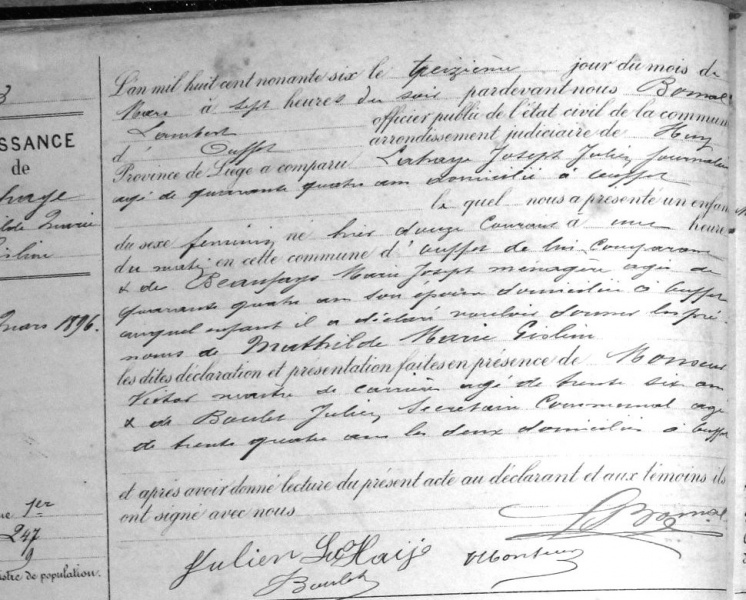 3
SSANCE
de
haye
ilde Marie
Gislin
Mars 1896.
1er
247
9
stre de population.
L'an mil huit cent nonante six le treizième jour du mois de
Mars à sept heures du soir pardevant nous Bomal
Lambert officier public de l'état civil de la commun
d' Ouffet arrondissement judiciaire de Huy
Province de Liège a comparu Lahaye Joseph Julien journalier
agé de quarante quatre ans domicilié à Ouffet
le quel nous a présenté un enfan
du sexe féminin né hier douze Courant à une heure
du matin en cette commune d'ouffet de lui Comparant
& de Beaufays Marie Joseph ménagère agée de
quarante quatre ans son épouse domiciliée à Ouffet
auquel enfant il a déclaré vouloir donner les pré-
noms de Mathilde Marie Gislin
les dites déclaration et présentation faites en présence de
Victor maitre de carrière agé de trente six ans
& de Boulet Julien Secrétaire Communal agé
de trente quatre ans les deux domiciliés à Ouffet
et après avoir donné lecture du présent acte au déclarant et aux témoins ils
ont signé avec nous
LBomal
Julien LaHaije
Boulet